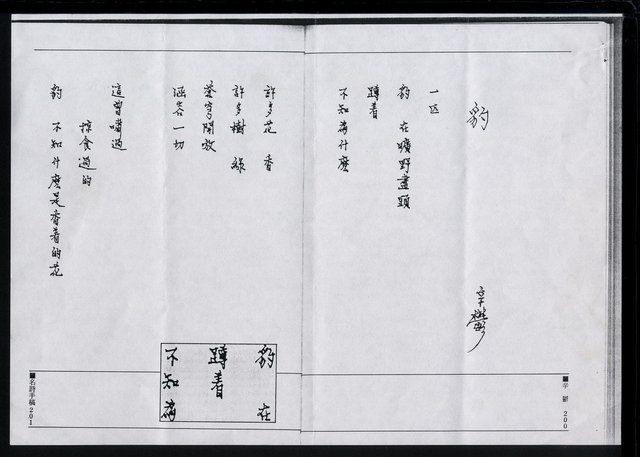 豹
辛鬱
一匹
豹 在曠野盡頭
蹲着
不知為什麼
許多花 香
許多樹 綠
蒼穹開放
涵容一切
這曾嘯過
掠食過的
豹 不知什麼是香着的花
豹 在
蹲着
不知為
■辛鬱 200
■名詩手稿 201